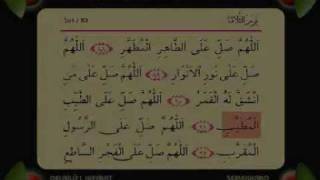 اَللّٰهُمَّ صَلِّ عَلَى الطَّاهِرِ الْمُطَهَّرِ اَللّٰهُمَّ
صَلِّ عَلَى نُورِ الْأَنْوَارِ اَللّٰهُمَّ صَلِّ عَلَى مَنِ
انْشَقَّ لَهُ الْقَمَرُ اَللّٰهُمَّ صَلِّ عَلَى الطَّيِّبِ
الْمُطَيَّبِ اَللّٰهُمَّ صَلِّ عَلَى الرَّسُولِ
الْمُقَرَّبِ اَللّٰهُمَّ صَلِّ عَلَى الْفَجْرِ السَّاطِعِ